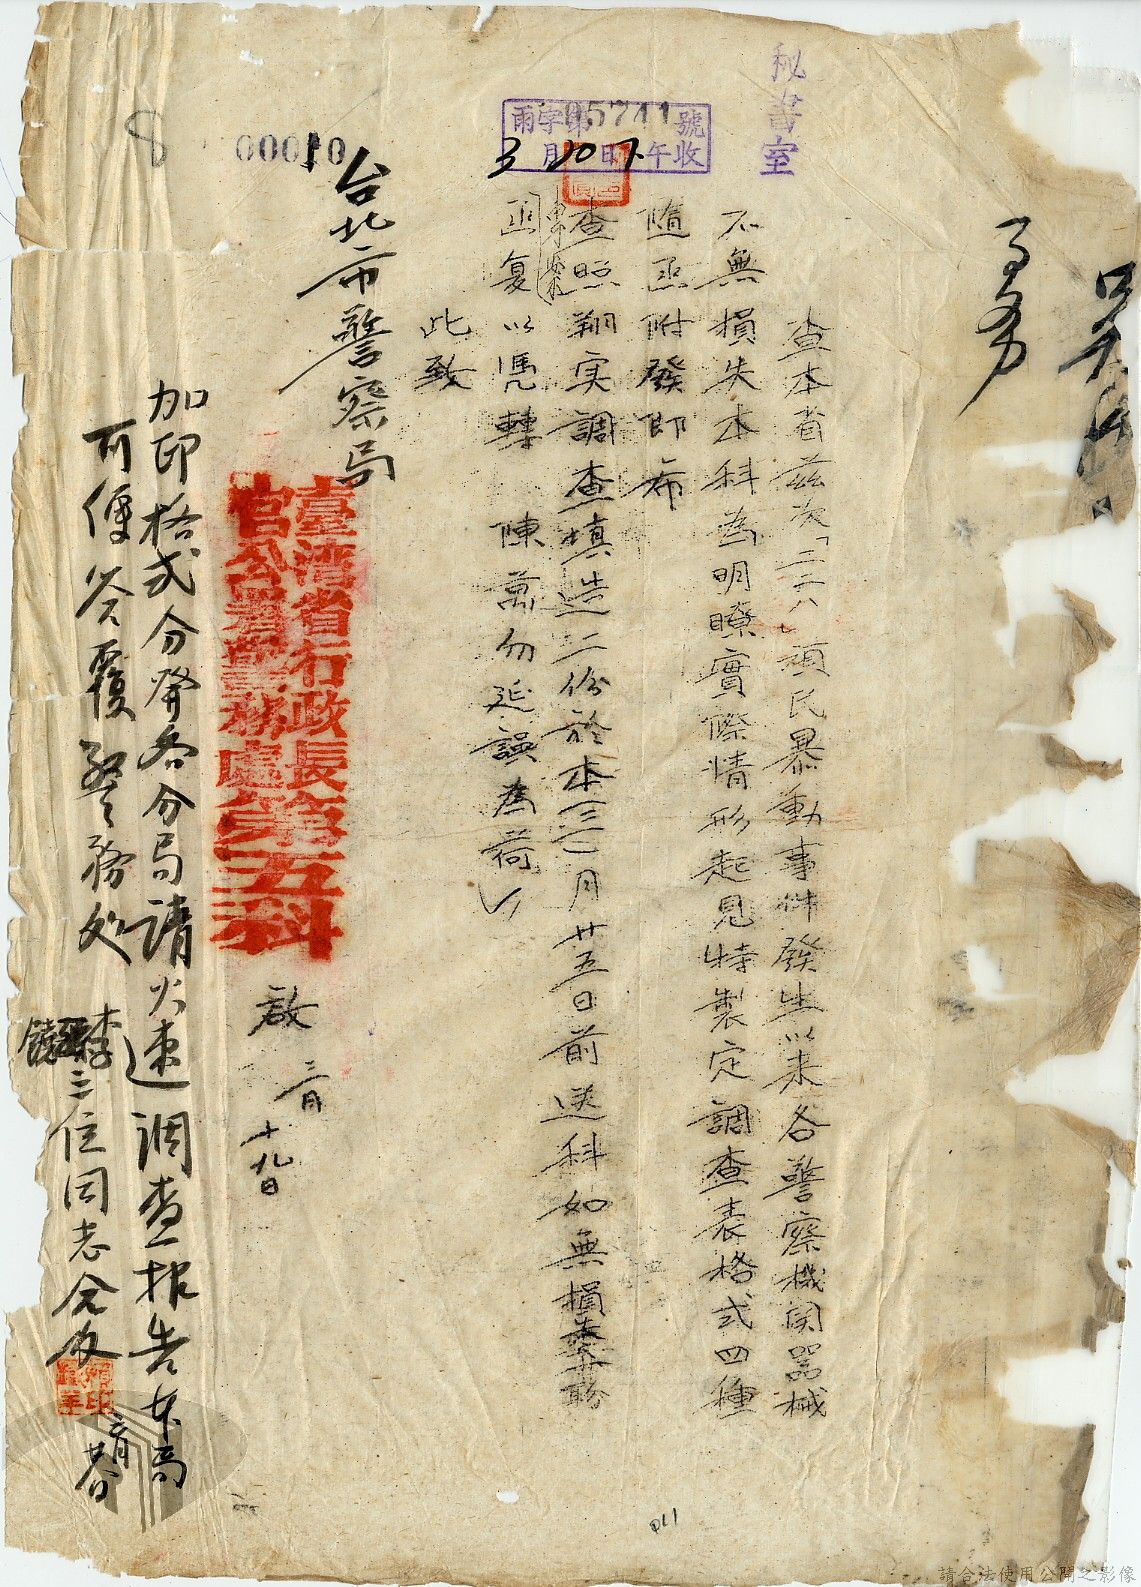 秘書室
雨字第05741號
3月20日 午收
查本省茲次「二二八」項民暴動事件發生以来各警察機関器械
不無損失本科為明瞭實際情形起見特製定調查表格式四種
隨函附發即希
查照翔实調查填造二份於本(三)月廿五日前送科如無損
函复以憑轉 陳萬勿延誤為荷
此致
台北市警察局
00010
8
臺灣省行政長
官公署警務處第五科
啟 三月十九日
加印格式分發各分局請火速調查报告本局
可便答覆警務处 李
三位同志会

011
請合法使用公開之影像